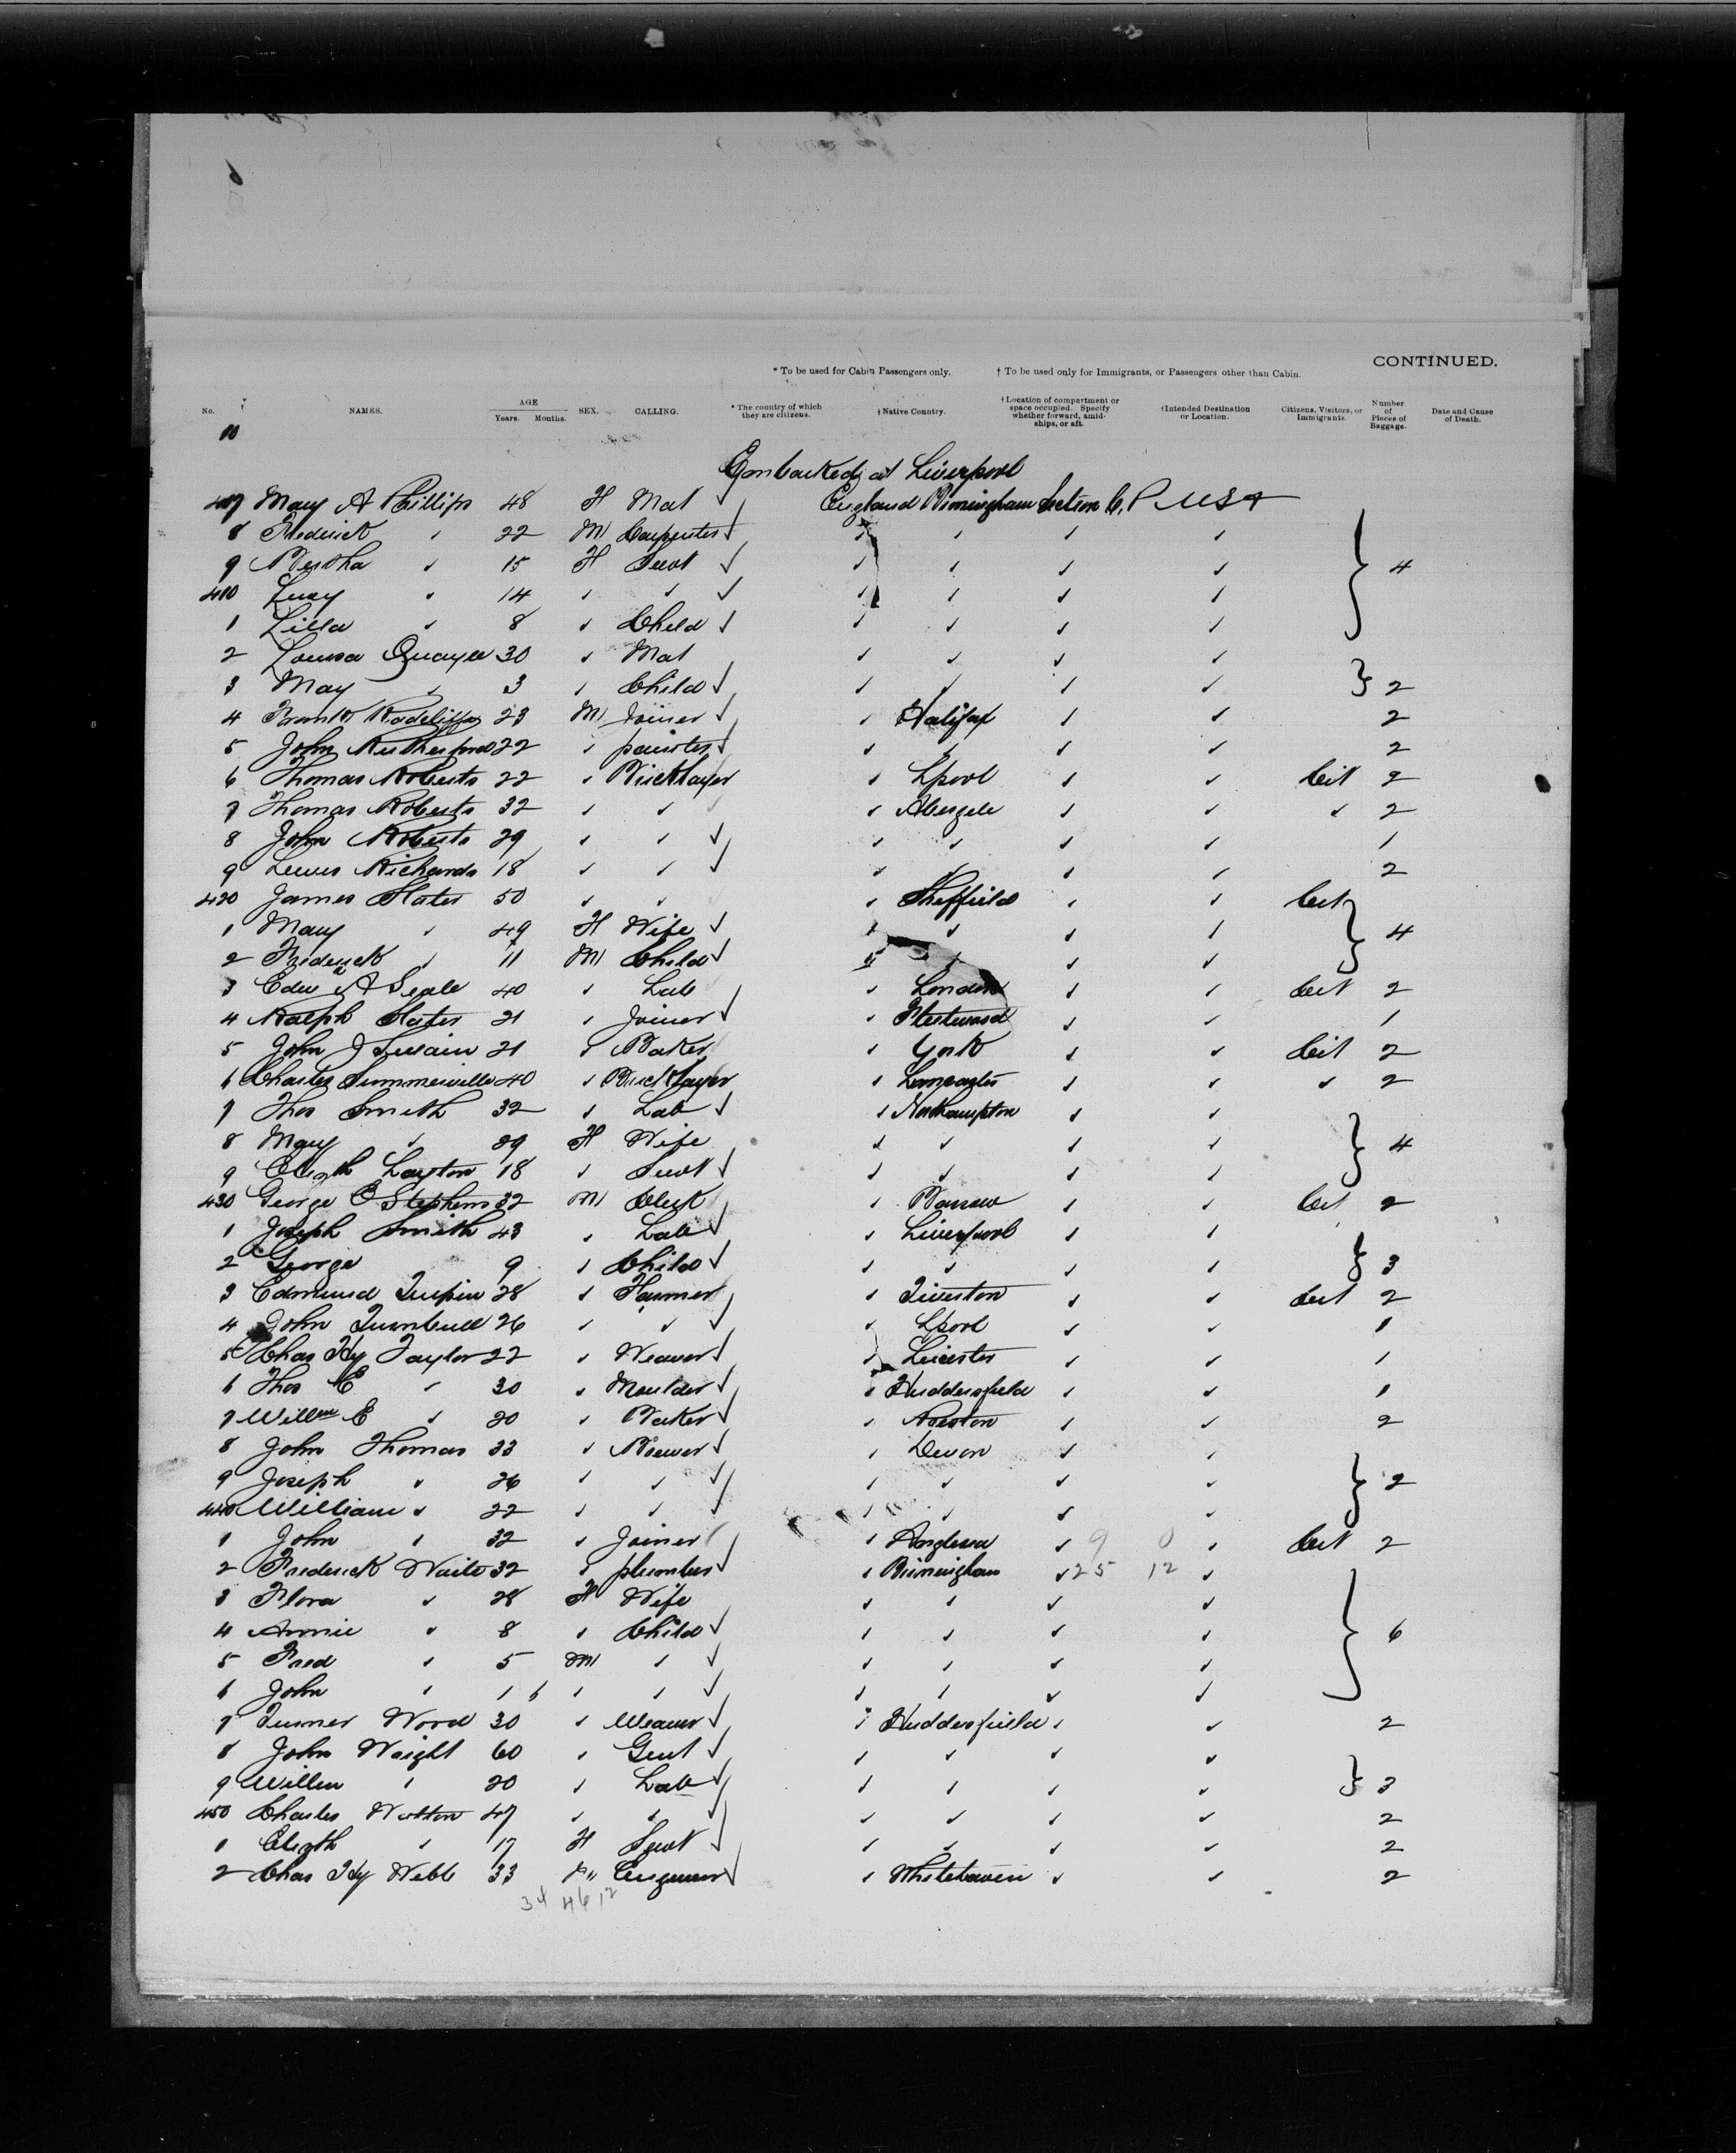 CONTINUED.
* To be used for Cabin Passengers only. † To be used only for Immigrants, or Passengers other than Cabin.
No. NAMES. AGE Years. Months. SEX. CALLING. * The country of which they are citizens. † Native Country. † Location of compartment or space occupied. Specify whether forward, amidships, or aft. † Intended Destination or Location. Citizens, Visitors, or Immigrants. Number of Pieces of Baggage. Date and Cause of Death.
Embarked at Liverpool
407 Mary A Phillips 48 F Mat ✓ England Birmingham Section C. USA
8 Frederick " 22 M Carpenter ✓ " " " "
9 Bertha " 15 F Servt ✓ " " " " 4
410 Lucy " 14 " " ✓ " " " "
1 Lilla " 8 " Child ✓ " " " "
2 Louisa Quayle 30 " Mat " " " "
3 May " 3 " Child ✓ " " " " 2
4 Frank Radcliffe 23 M Joiner ✓ " Halifax " " 2
5 John Rutherford 22 " painter ✓ " " " " 2
6 Thomas Roberts 22 " Bricklayer " Lpool " " Cit 2
7 Thomas Roberts 32 " " " Abergele " " " 2
8 John Roberts 29 " " ✓ " " " " 1
9 Lewis Richards 18 " " ✓ " " " " 2
420 James Slater 50 " " " Sheffield " " Cit
1 Mary " 49 F Wife ✓ " " " " 4
2 Frederick " 11 M Child ✓ " " " "
3 Edw A Seale 40 " Lab " London " " Cit 2
4 Ralph Slater 21 " Joiner ✓ " Fleetwood " " 1
5 John J Swain 21 " Baker " York " " Cit 2
6 Charles Summerville 40 " Bricklayer " Lancaster " " " 2
7 Thos Smith 32 " Lab ✓ " Northampton " "
8 Mary " 29 F Wife " " " " 4
9 Elizth Layton 18 " Servt ✓ " " " "
430 George E Stephens 32 M Clerk " Barrow " " Cit 2
1 Joseph Smith 43 " Lab ✓ " Liverpool " "
2 George 9 " Child ✓ " " " " 3
3 Edmund Turpin 28 " Farmer " Tiverton " " Cit 2
4 John Turnbull 26 " " ✓ " Lpool " " 1
5 Chas Hy Taylor 22 " Weaver ✓ " Leicester " " 1
6 Thos E " 30 " Moulder ✓ " Huddersfield " " 1
7 Willm E " 20 " Baker ✓ " Preston " " 2
8 John Thomas 33 " Brewer ✓ " Devon " "
9 Joseph " 26 " " ✓ " " " " 2
440 William " 22 " " ✓ " " " "
1 John " 32 " Joiner " Anglesea " 9 0 " Cit 2
2 Frederick Waite 32 " plumber ✓ " Birmingham " 25 12 "
3 Flora " 28 F Wife " " " "
4 Annie " 8 " Child ✓ " " " " 6
5 Fred " 5 M " ✓ " " " "
6 John " 1 6 " " ✓ " " " "
7 Turner Wood 30 " Weaver ✓ " Huddersfield " " 2
8 John Wright 60 " Gent ✓ " " " "
9 Willm " 20 " Lab ✓ " " " " 3
450 Charles Walton 47 " " ✓ " " " " 2
1 Elizth " 17 F Servt ✓ " " " " 2
2 Chas Hy Webb 33 M Engineer ✓ " Whitehaven " " 2
34 46 12